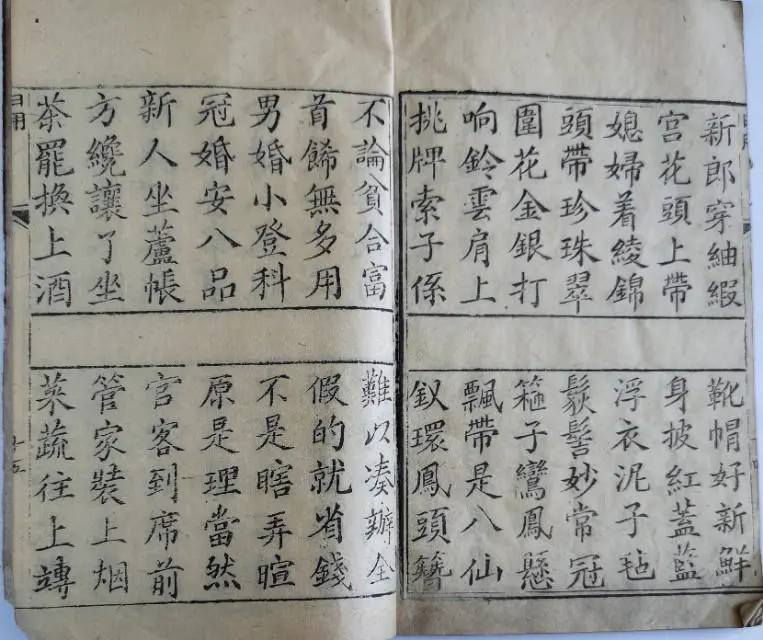 新郎穿紬緞
靴帽好新鮮
宮花頭上帶
身披紅蓋藍
媳婦着綾錦
浮衣泥子毡
頭帶珍珠翠
鬏髻妙常冠
圍花金銀打
箍子鸞鳳懸
响鈴雲肩上
飄帶是八仙
挑牌索子係
釵環鳳頭簪
不論貧合富
難以凑辦全
首餙無多用
假的就省錢
男婚小登科
不是瞎弄暄
冠婚安八品
原是理當然
新人坐蘆帳
官客到席前
方纔讓了坐
管家裝上烟
茶罷換上酒
菜蔬往上竱
日用
十五